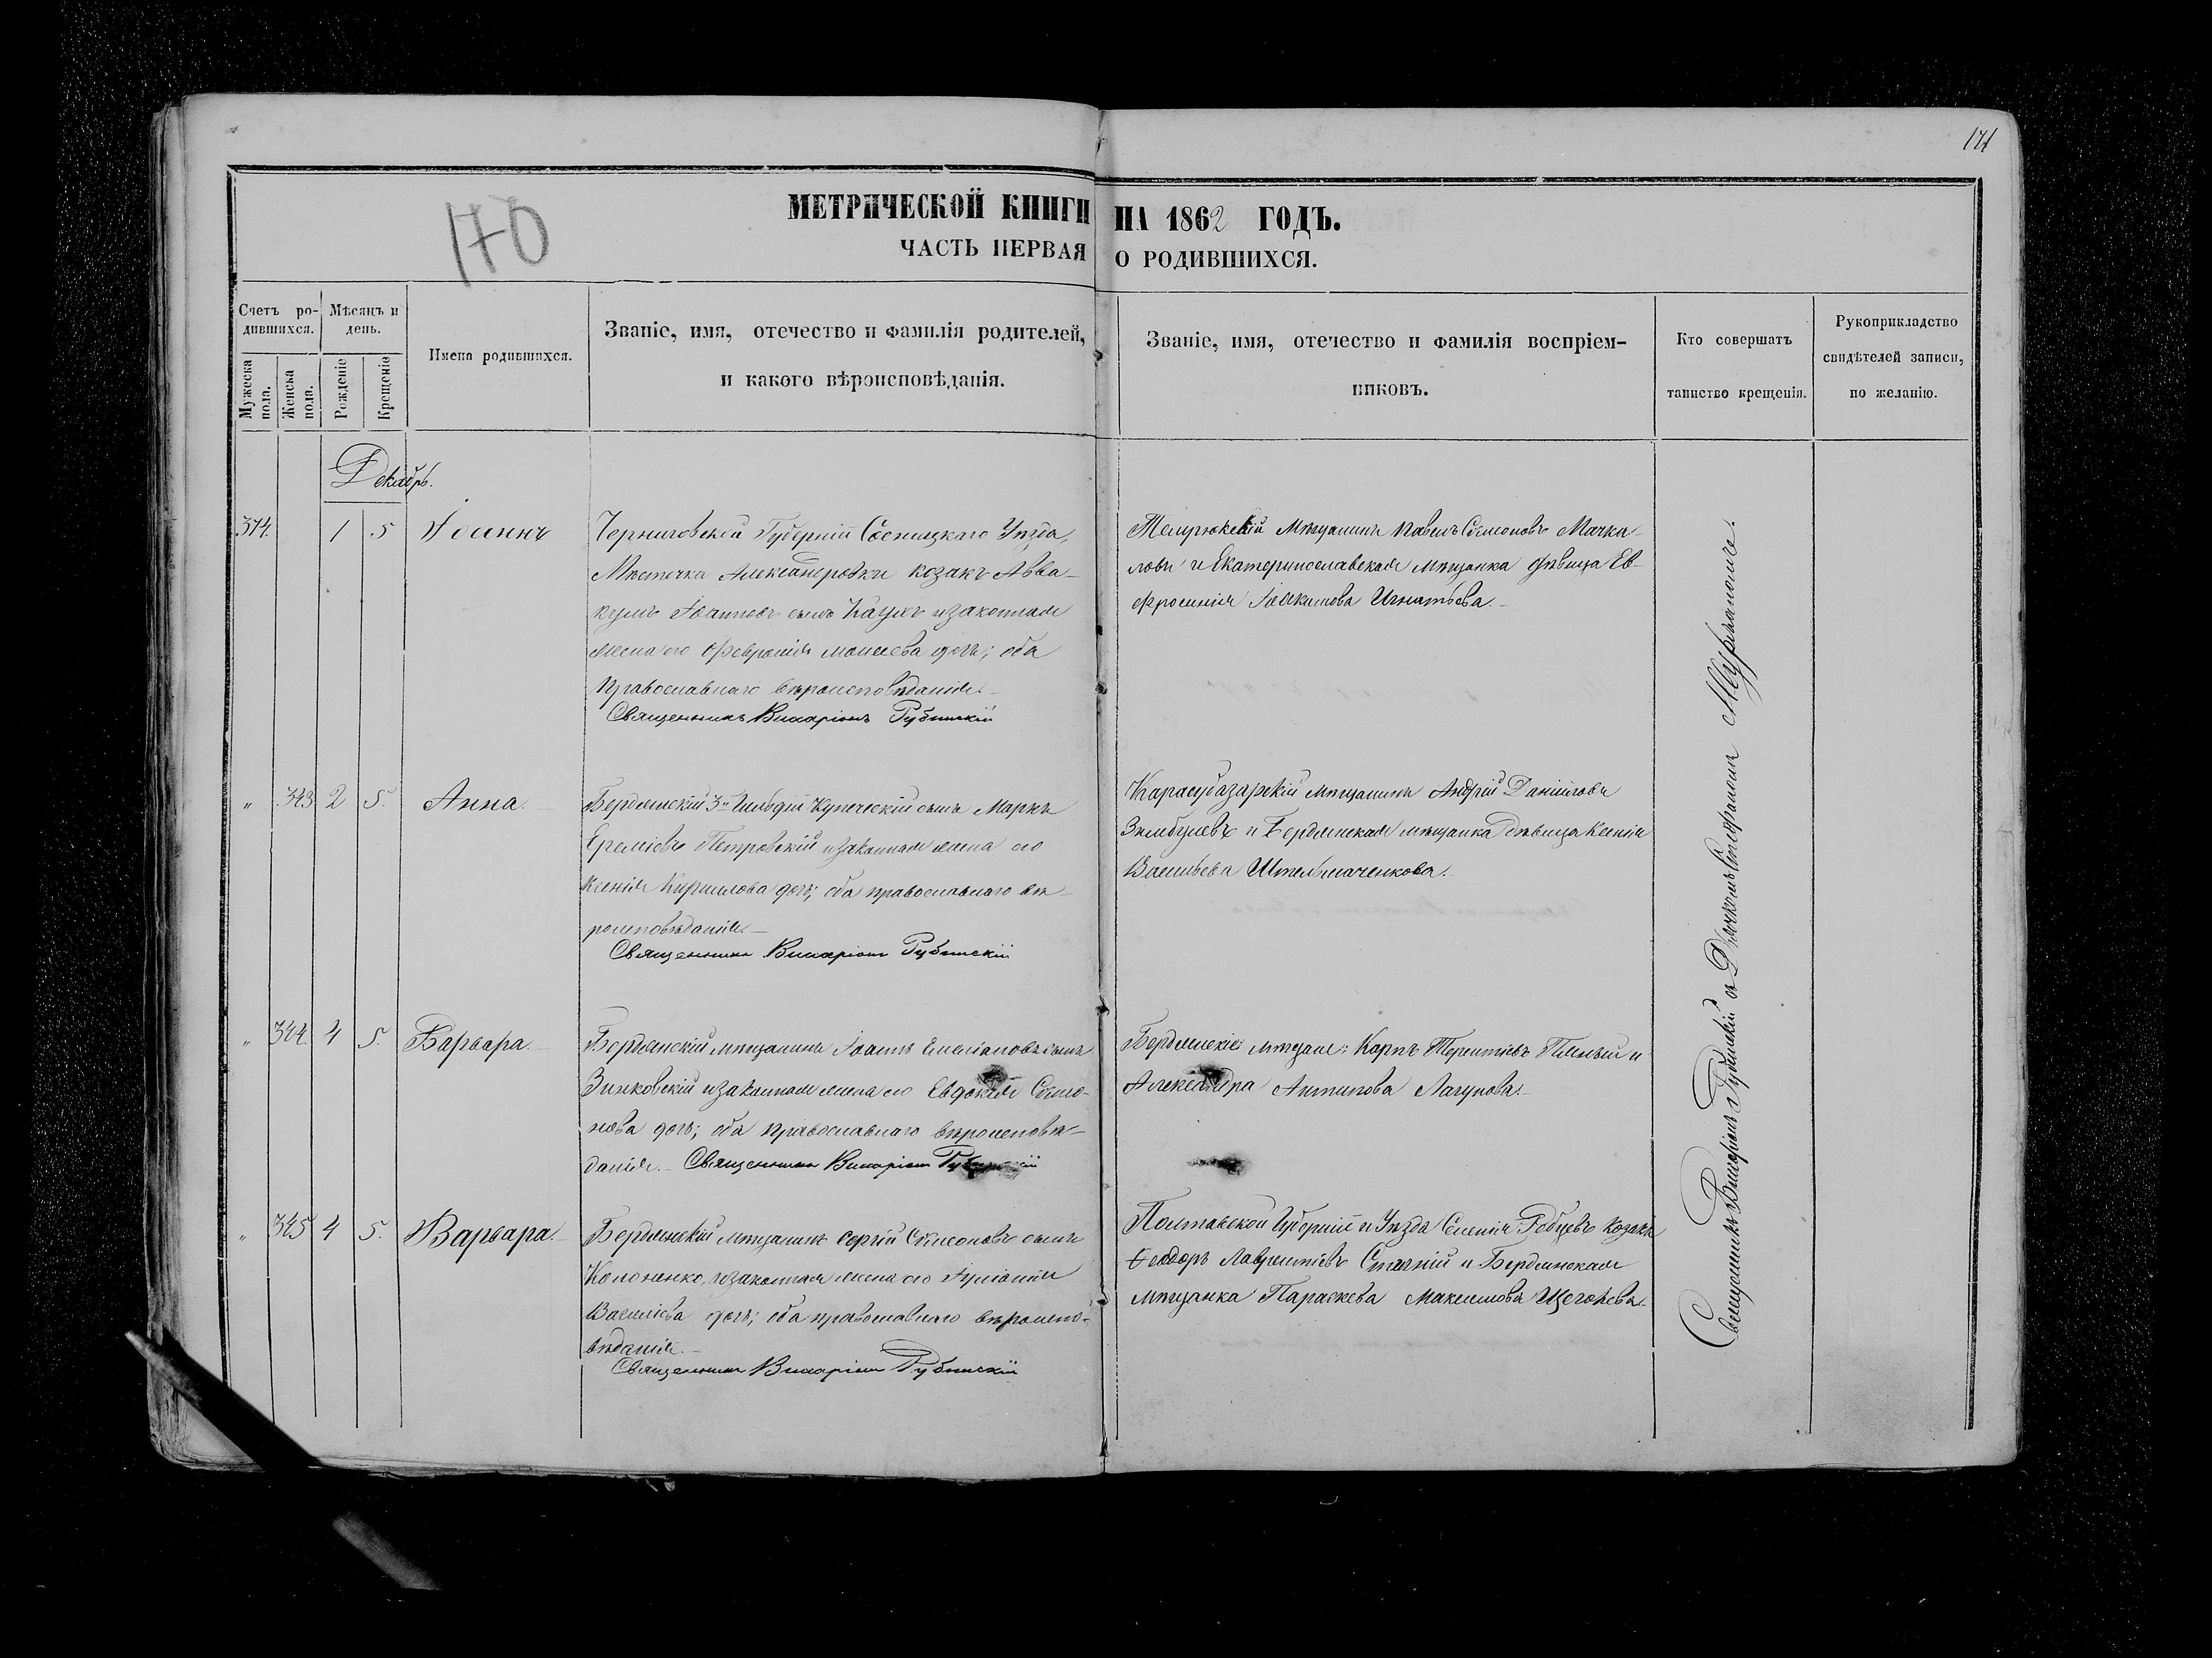 171
170
МЕТРИЧЕСКОЙ КНИГИ НА 1862 ГОДЪ.
ЧАСТЬ ПЕРВАЯ О РОДИВШИХСЯ.
Счетъ родившихся.
Мѣсяцъ и день.
Мужеска пола.
Женска пола.
Рожденіе
Крещеніе
Имена родившихся.
Званіе, имя, отечество и фамилія родителей,
и какого вѣроисповѣданія.
Званіе, имя, отечество и фамилія воспріем-
никовъ.
Кто совершатъ
таинство крещенія.
Рукоприкладство
свидѣтелей записи,
по желанію.
Декабрь.
374. 1 5 Іоаннъ
Черниговской Губерніи Сосницкаго Уѣзда,
Мѣстечка Александровки козакъ Авва-
кумъ Іоанновъ сынъ Кацукъ и законная
жена его Феврония Моисеева дочь; оба
Православнаго вѣроисповѣданія.
Священникъ Иларіонъ
Темрюкскій Мѣщанинъ Павелъ Симеоновъ Мачка-
ловъ и Екатеринославская мѣщанка дѣвица Ев-
фросинія Іоакимова Игнатьева.
" 343 2 5. Анна.
Бердянскій 3й Гильдіи Купеческій сынъ Маркъ
Ереміевъ Петровскій и законная жена его
Ксенія Кириллова дочь; оба православнаго вѣ-
роисповѣданія.
Священникъ Иларіонъ
Карасубазарскій мѣщанинъ Андрій Даніиловъ
и Бердянская мѣщанка дѣвица Ксенія
Васильева Штельмаченкова.
" 344. 4 5. Варвара.
Бердянскій мѣщанинъ Іоаннъ Емеліановъ сынъ
Зинковскій и законная жена его Евдокія Симо-
нова дочь; оба православнаго вѣроисповѣ-
данія. Священникъ Иларіонъ
Бердянскіе мѣщане: Карпъ Терентіевъ и
Александра Антипова Лагунова.
" 345 4 5. Варвара.
Бердянскій мѣщанинъ Сергій Симеоновъ сынъ
Кононенко, и законная жена его Іуліанія
Василіева дочь; оба православнаго вѣроиспо-
вѣданія.
Священникъ Иларіонъ
Полтавской Губерніи и Уѣзда Селенія козакъ
Феодоръ Лаврентіевъ и Бердянская
мѣщанка Параскева Максимова Щеголева.
Священникъ Иларіонъ съ Дьячкомъ Стефаномъ